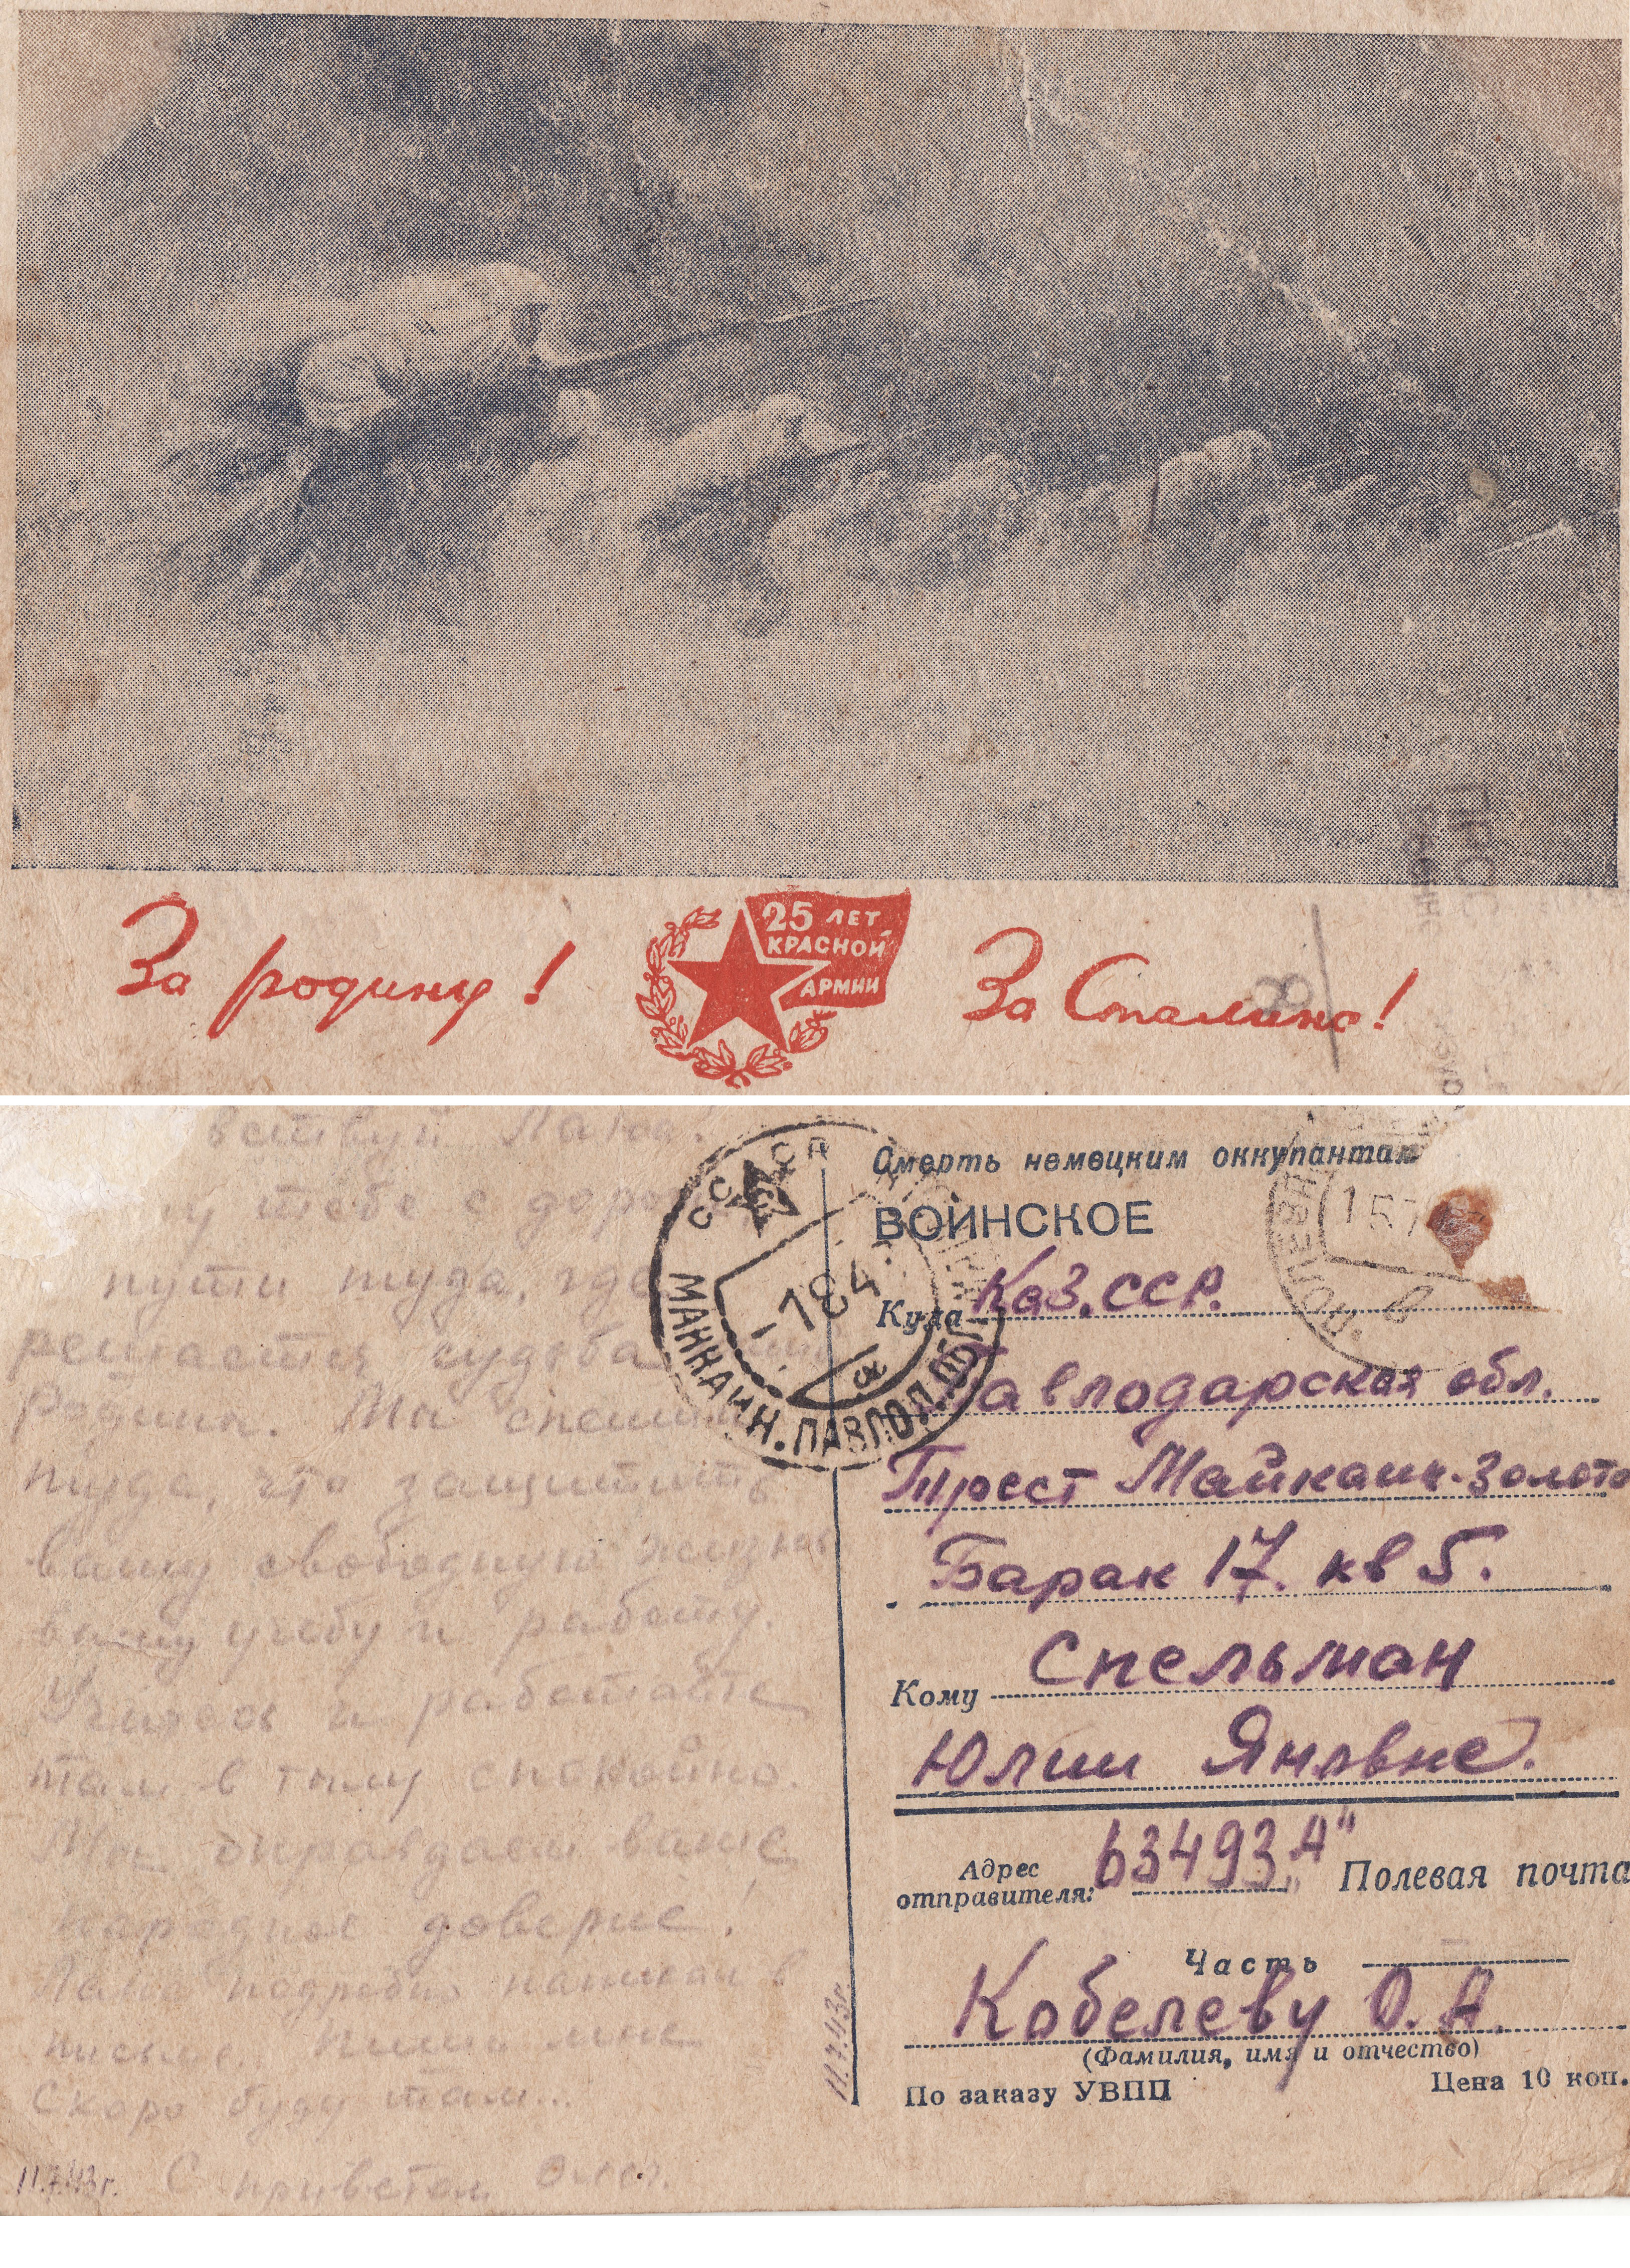 За родину!
25 ЛЕТ
КРАСНОЙ
АРМИИ
За Сталина!
тебе с
пути туда, где
решается судьба
Родины. Мы спешим
туда, что защитить
вашу свободную жизнь
вашу учебу и работу.
Учитесь и работайте
там в тылу спокойно
Мы оправдаем ваше
народное доверие.
подробно напишу в
письме. Пиши мне
Скоро буду там...
11.7.43г. С приветом
11.7.43г.
СССР
МАЙКАИН. ПАВЛОД. ОБЛ
а
Смерть немецким оккупантам
ВОИНСКОЕ
Куда Каз. ССР.
Павлодарская обл.
Трест Майкаин-золото
Барак 17. кв 5.
Кому Спельман
Юлии Яновне.
Адрес
отправителя: 63493 „А" Полевая почта
Часть
Кобелеву О. А.
(Фамилия, имя и отчество)
По заказу УВПП Цена 10 коп.